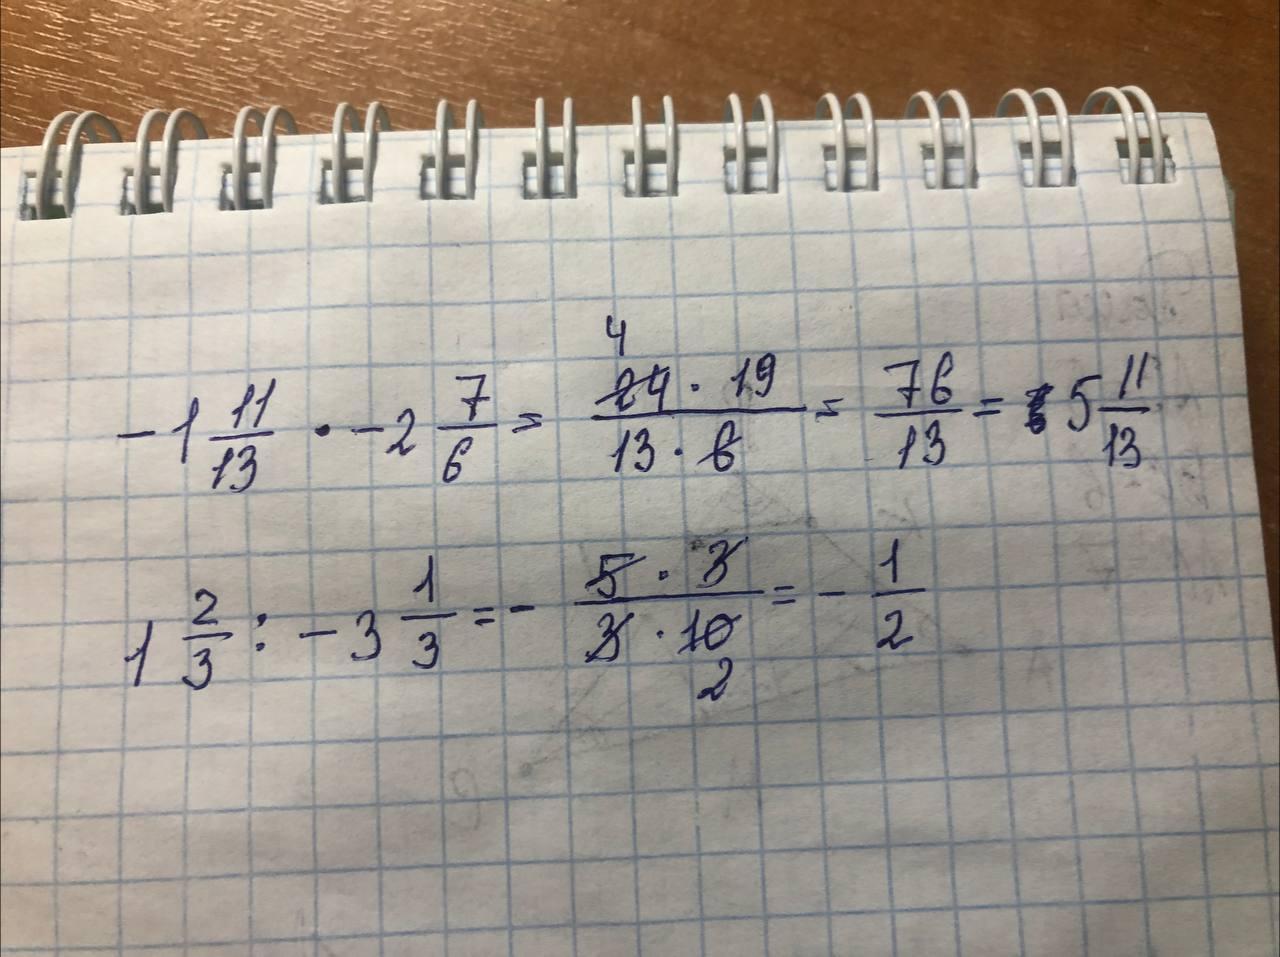 -1 11/13 · -2 7/6 = 24 · 19 / 13 · 6 = 76/13 = 5 11/13
4
1 2/3 : -3 1/3 = - 5 · 3 / 3 · 10 = - 1/2
2